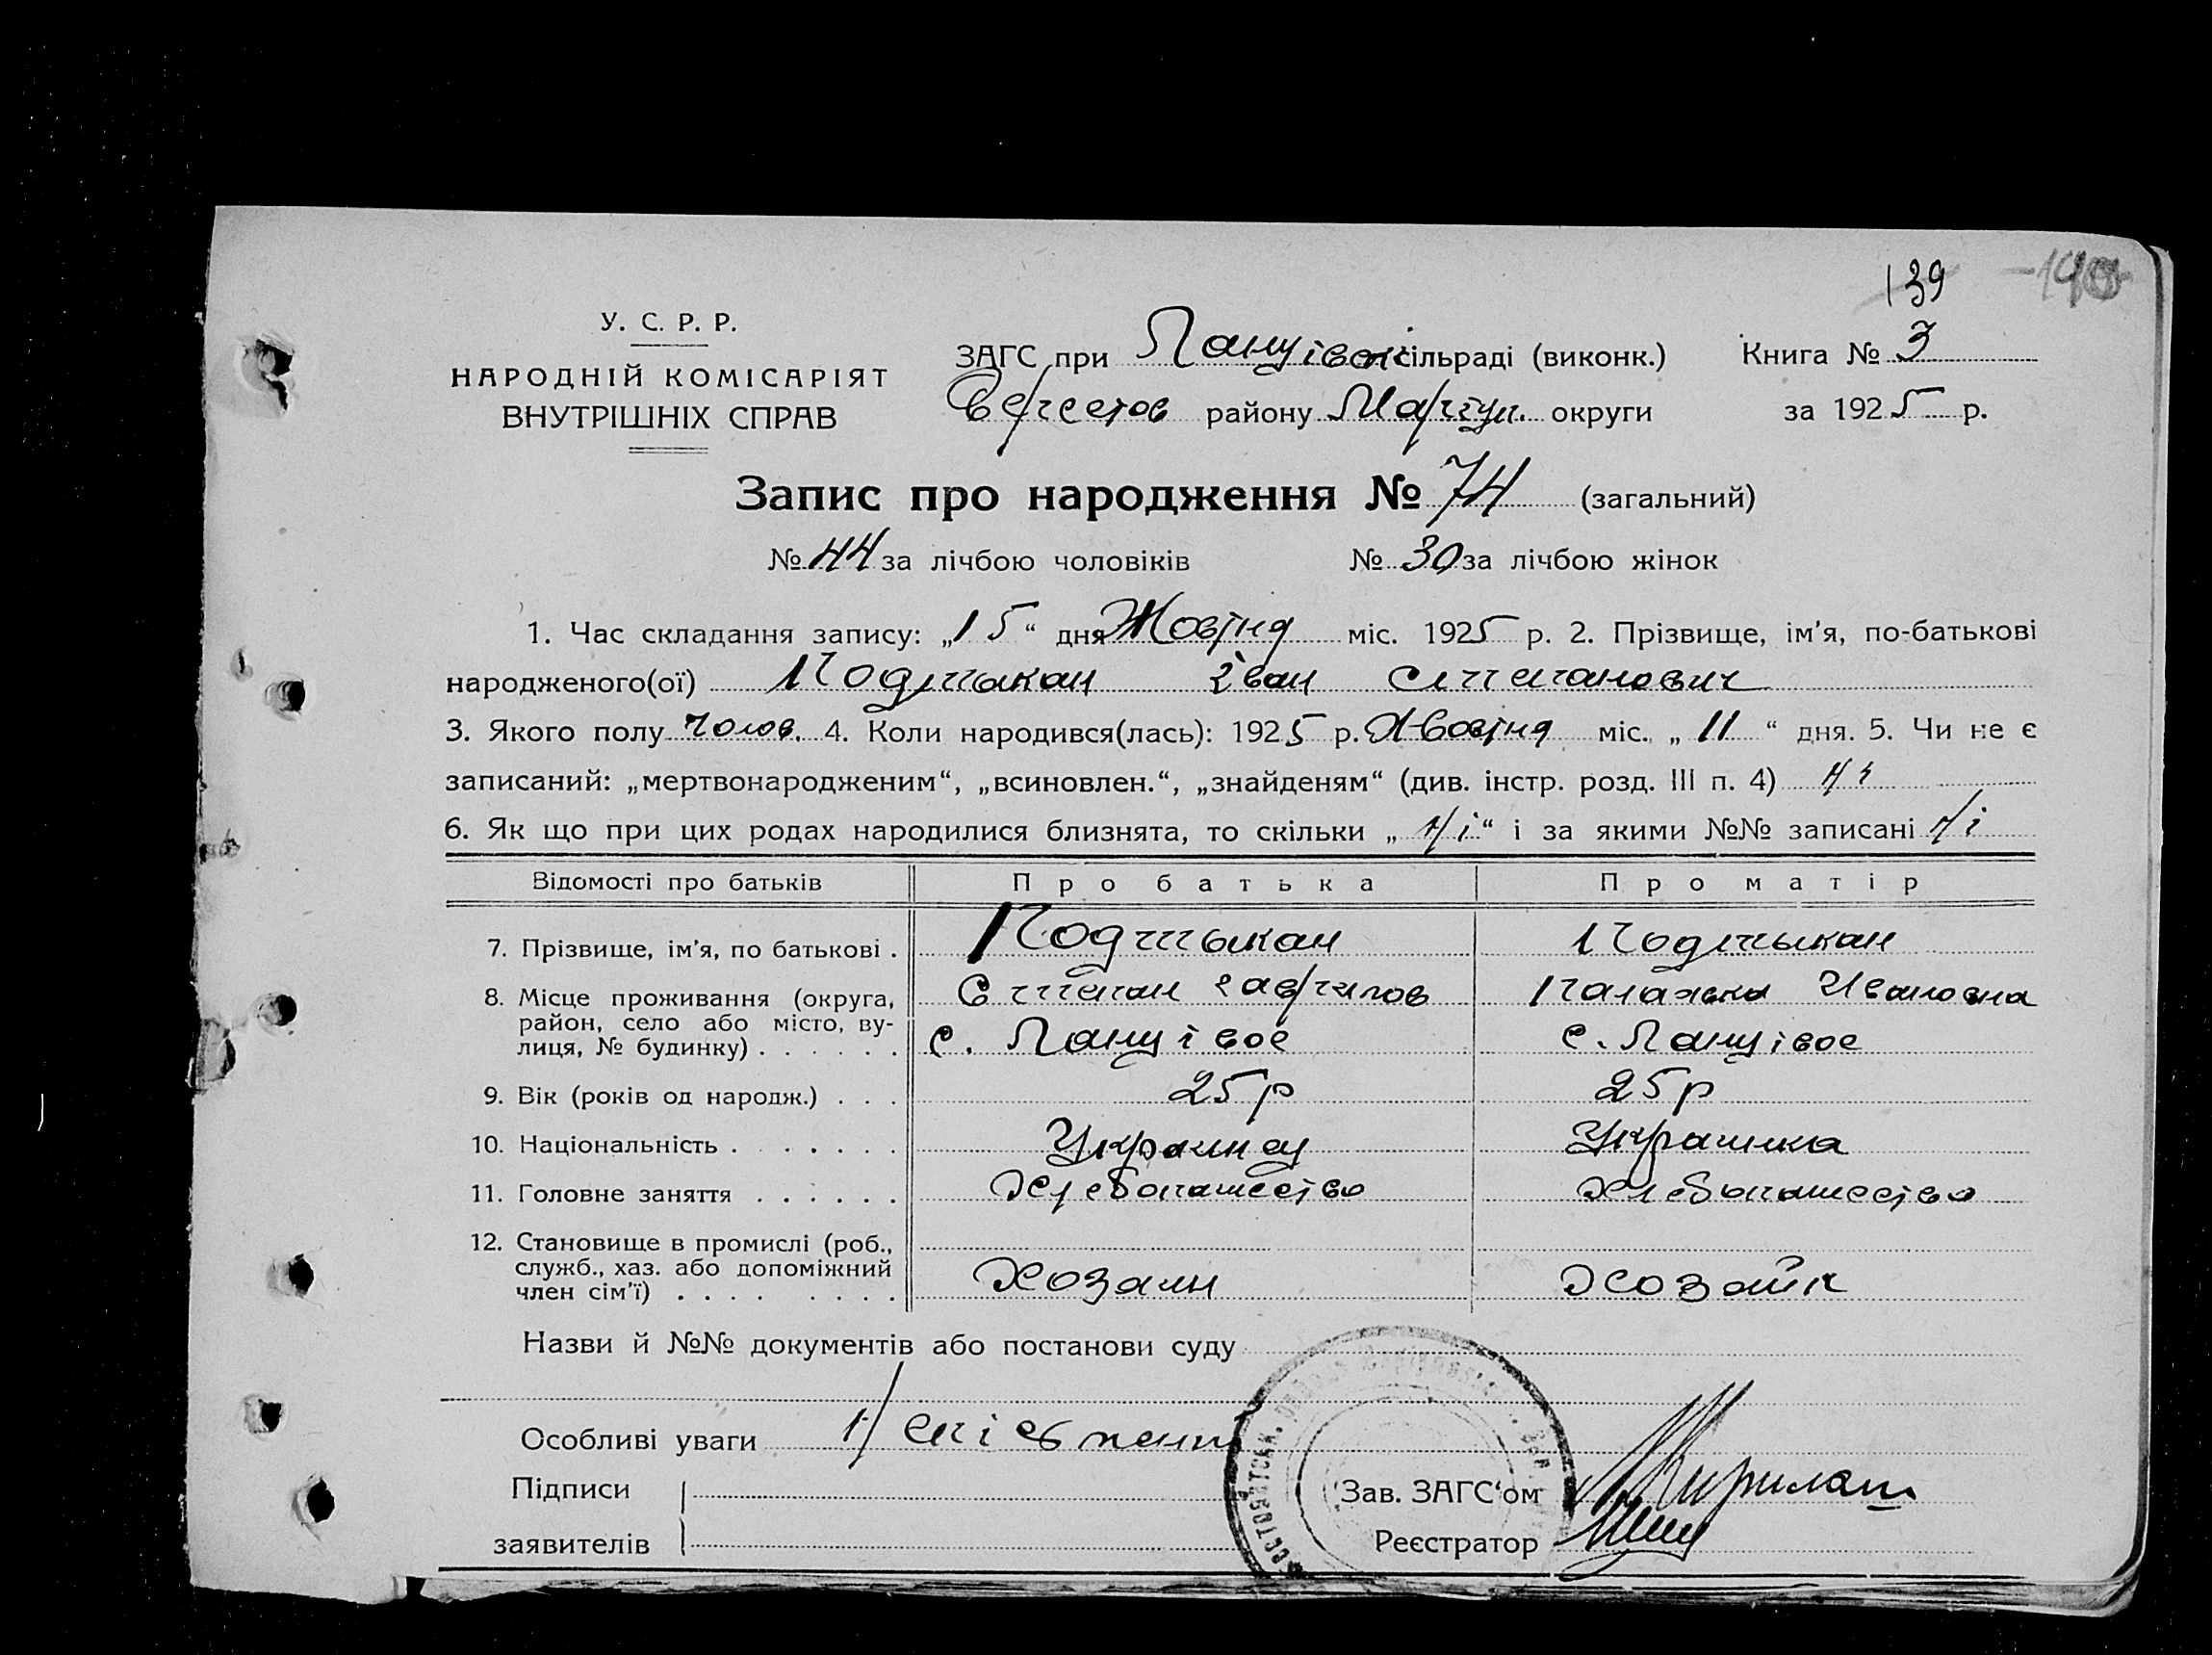 139
У. С. Р. Р.
НАРОДНІЙ КОМІСАРІЯТ
ВНУТРІШНІХ СПРАВ
ЗАГС при Ланцівсkiй сільраді (виконк.) Книга № 3
району Маріуп. округи за 1925 р.
Запис про народження № 74 (загальний)
№ 44 за лічбою чоловіків № 30 за лічбою жінок
1. Час складання запису: „15“ дня Жовтня міс. 1925 р. 2. Прізвище, ім’я, по-батькові
народженого(ої) Іван Степанович
3. Якого полу чолов. 4. Коли народився(лась): 1925 р. Жовтня міс. „11“ дня. 5. Чи не є
записаний: „мертвонародженим“, „всиновлен.“, „знайденям“ (див. інстр. розд. III п. 4) Ні
6. Як що при цих родах народилися близнята, то скільки „Ні“ і за якими №№ записані Ні
Відомості про батьків Про батька Про матір
7. Прізвище, ім’я, по батькові .
8. Місце проживання (округа, Степан Гаврилов Палажка Ивановна
район, село або місто, ву-
лиця, № будинку) . . . . . . с. Ланцівое с. Ланцівое
9. Вік (років од народж.) . . . 25 р 25 р
10. Національність . . . . . . . Украинец Украинка
11. Головне заняття . . . . . . Хлебопашество Хлебопашество
12. Становище в промислі (роб.,
служб., хаз. або допоміжний
член сім’ї) . . . . . . . . Хозаин Хозайк
Назви й №№ документів або постанови суду
Особливі уваги
Підписи
заявителів
Зав. ЗАГС‘ом
Реєстратор